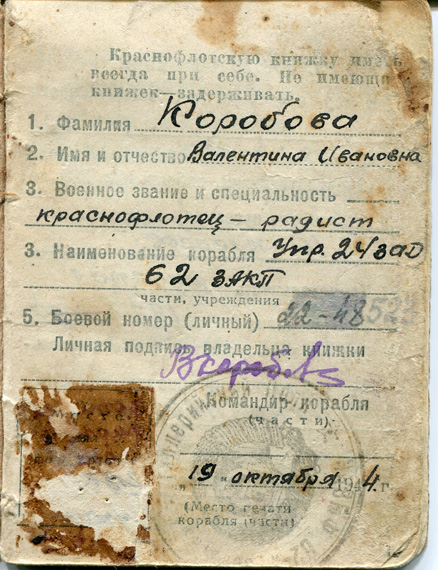 Краснофлотскую книжку иметь
всегда при себе. Не имеющих
книжек—задерживать.
1. Фамилия Коробова
2. Имя и отчество Валентина Ивановна
3. Военное звание и специальность
краснофлотец – радист
3. Наименование корабля Упр. 24 заД
62 ЗАКП
части, учреждения
5. Боевой номер (личный) 22-48
Личная подпись владельца книжки
ВКоробова
Командир корабля
(части)
„19" октября 1944 г.
(Место печати
корабля (части)